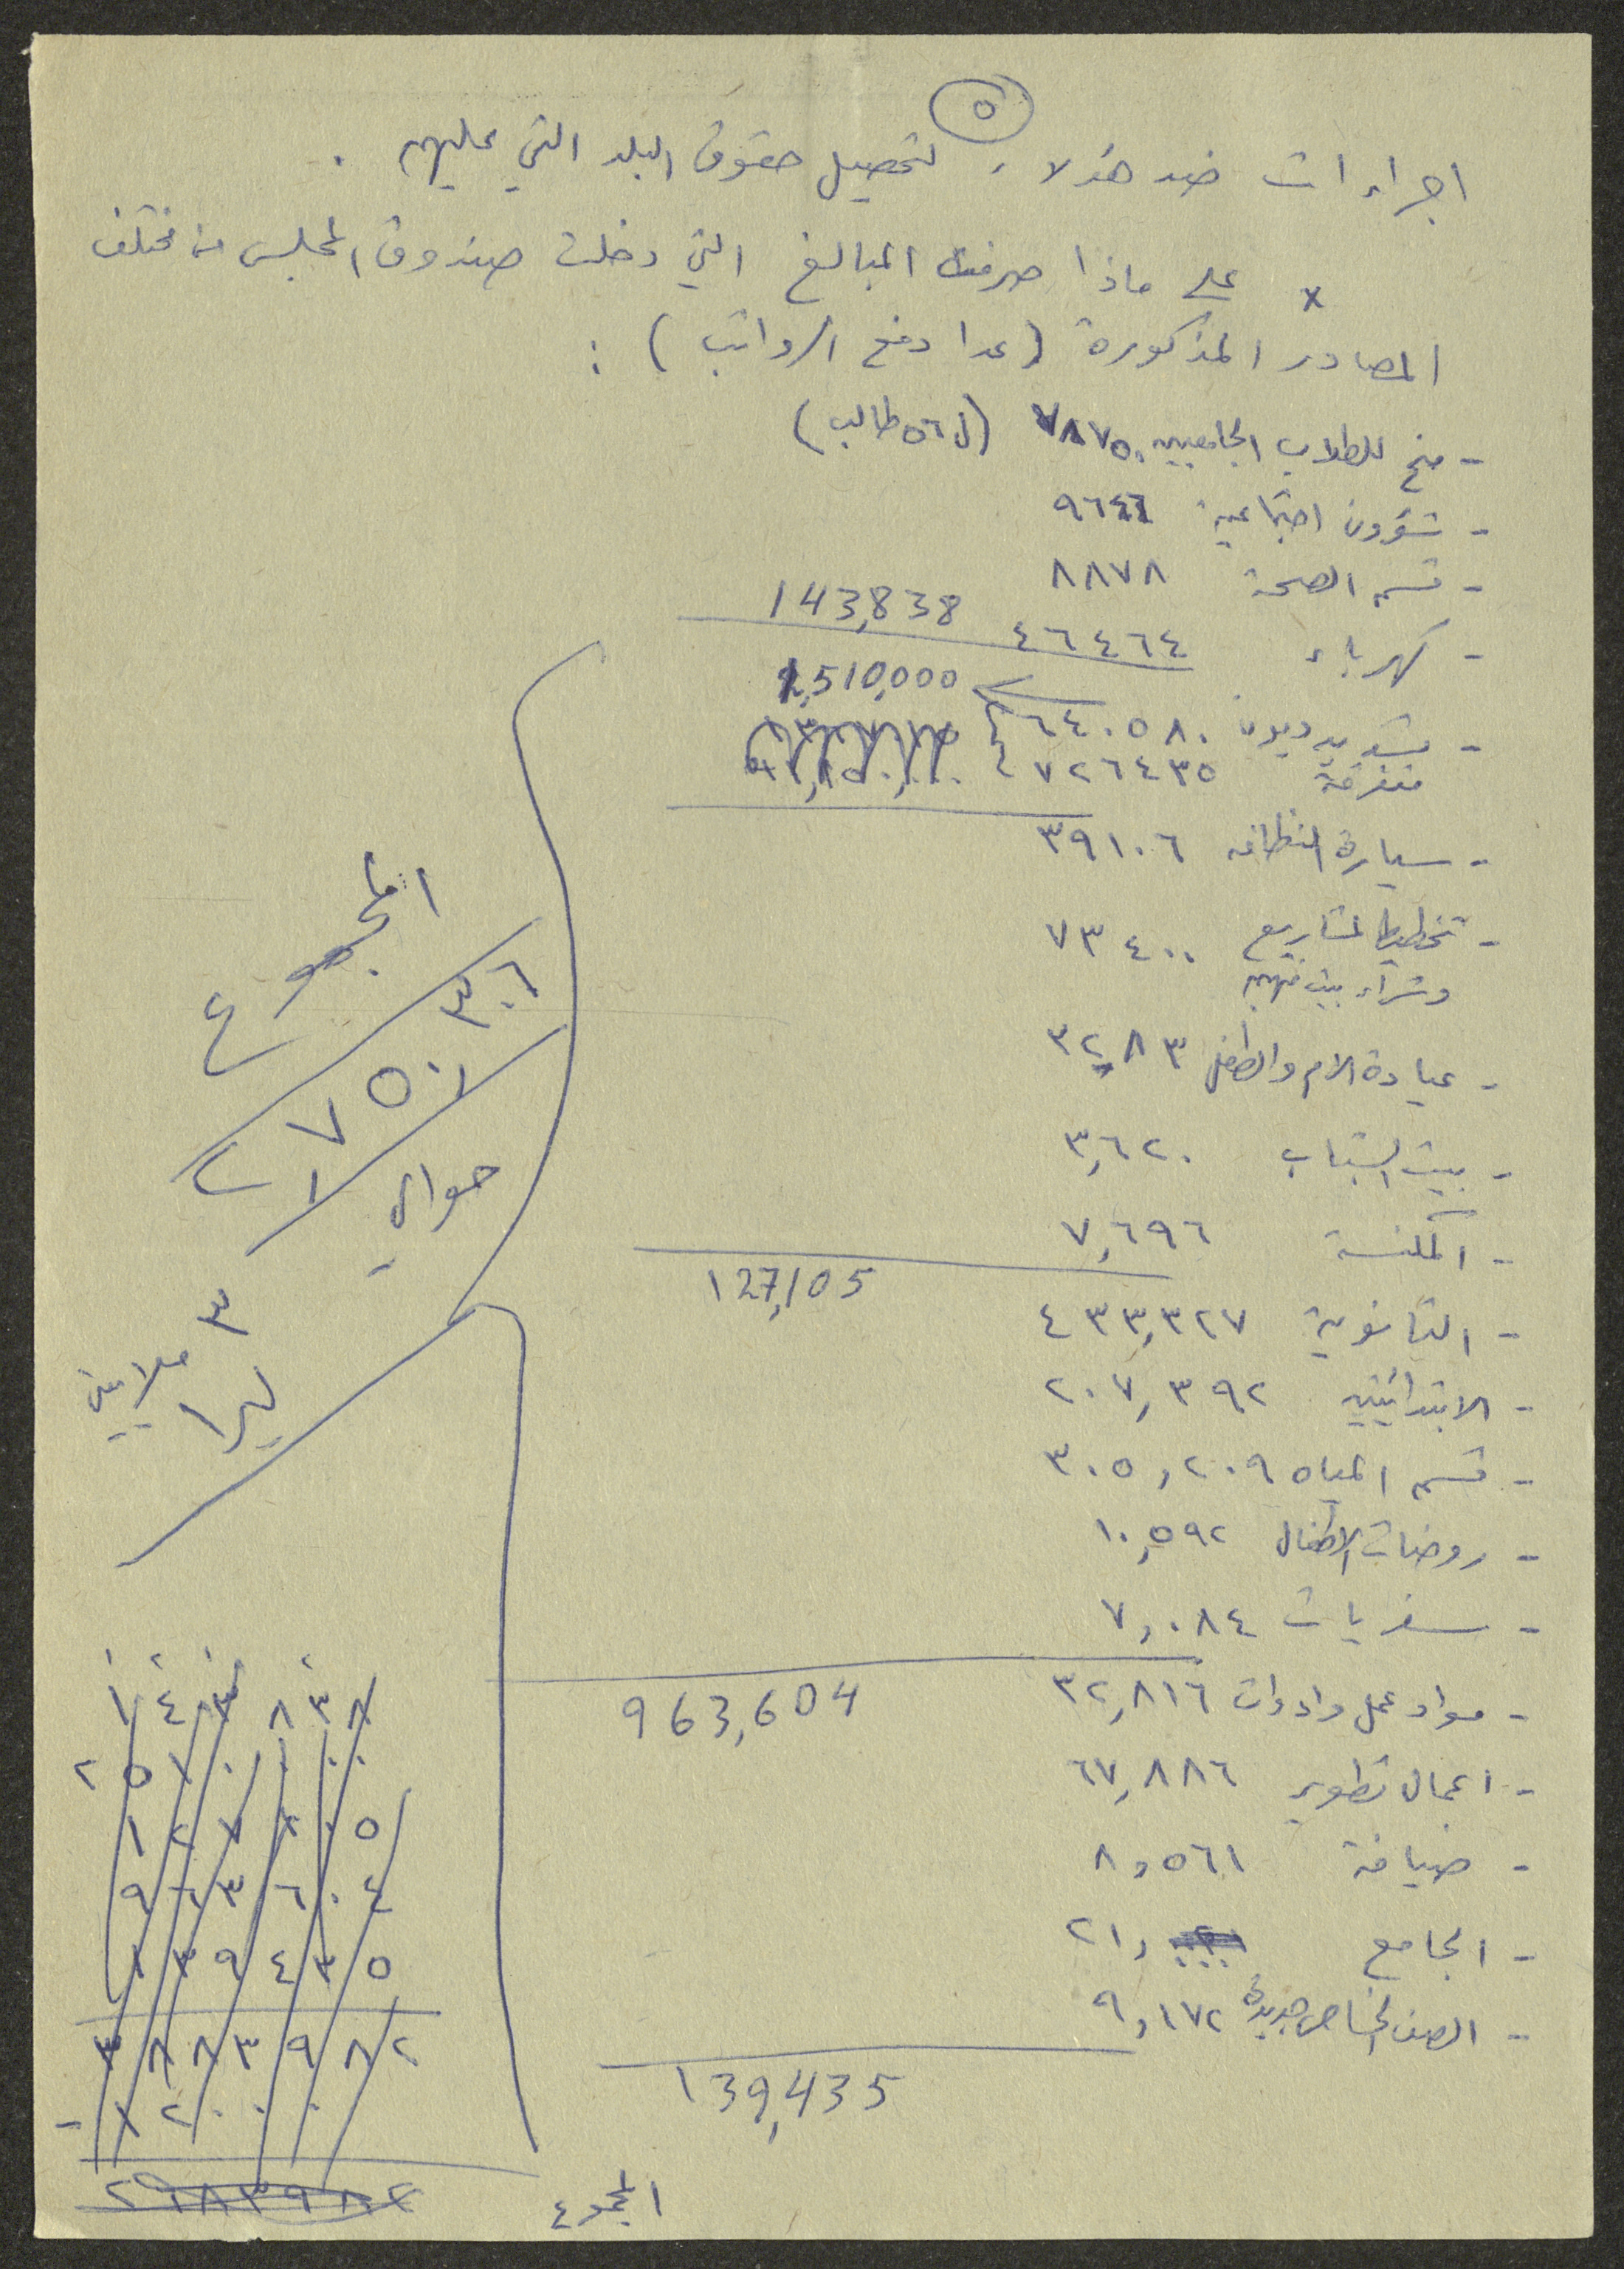 ٥
اجراءات ضد هؤلاء لتحصيل حقوق البلد التي عليهم .
x على ماذا صرفت المبالغ التي دخلت صندوق المجلس من مختلف
المصادر المذكورة (عدا دفع الرواتب) :
- منح للطلاب الجامعيين ٧٨٧٥٠ (ل ٥٦ طالب)
- شؤون اجتماعية ٩٦٤٦
- قسم الصحة ٨٨٧٨
- كهرباء ٤٦٤٦٤ 143,838
- تسديد ديون ٦٤٠٥٨٠ 1,510,000
متفرقة ٧٢٦٤٣٥
- سيارة النظافة ٣٩١٠٦
- تخطيط لمشاريع ٧٣٤٠٠
وشراء بيت
- عيادة الام والطفل ٣٢٨٣
- بيت الشباب ٣,٦٢٠
- المكنسة ٧,٦٩٦
127,105
- الثانوية ٤٣٣,٣٢٧
- الابتدائيتين ٢٠٧,٣٩٢
- قسم المياه ٣٠٥,٢٠٩
- روضات الاطفال ١٠,٥٩٢
- سفريات ٧,٠٨٤
963,604
- مواد عمل وادوات ٣٢,٨١٦
- اعمال تطوير ٦٧,٨٨٦
- ضيافة ٨,٥٦١
- الجامع ٢١,٠٠٠
- الصف الخاص جديدة ٩,١٧٢
139,435
المجموع
المجموع
٣٠٦
٧٥٠
حوالي
٣ ملايين
ليرا
١٤٣٨٣٨
٢٥١٠٠٠٠
١٢٧١٠٥
٩٦٣٦٠٤
١٣٩٤٣٥
٣٨٨٣٩٨٢
٢٩٨٣٩٨٢